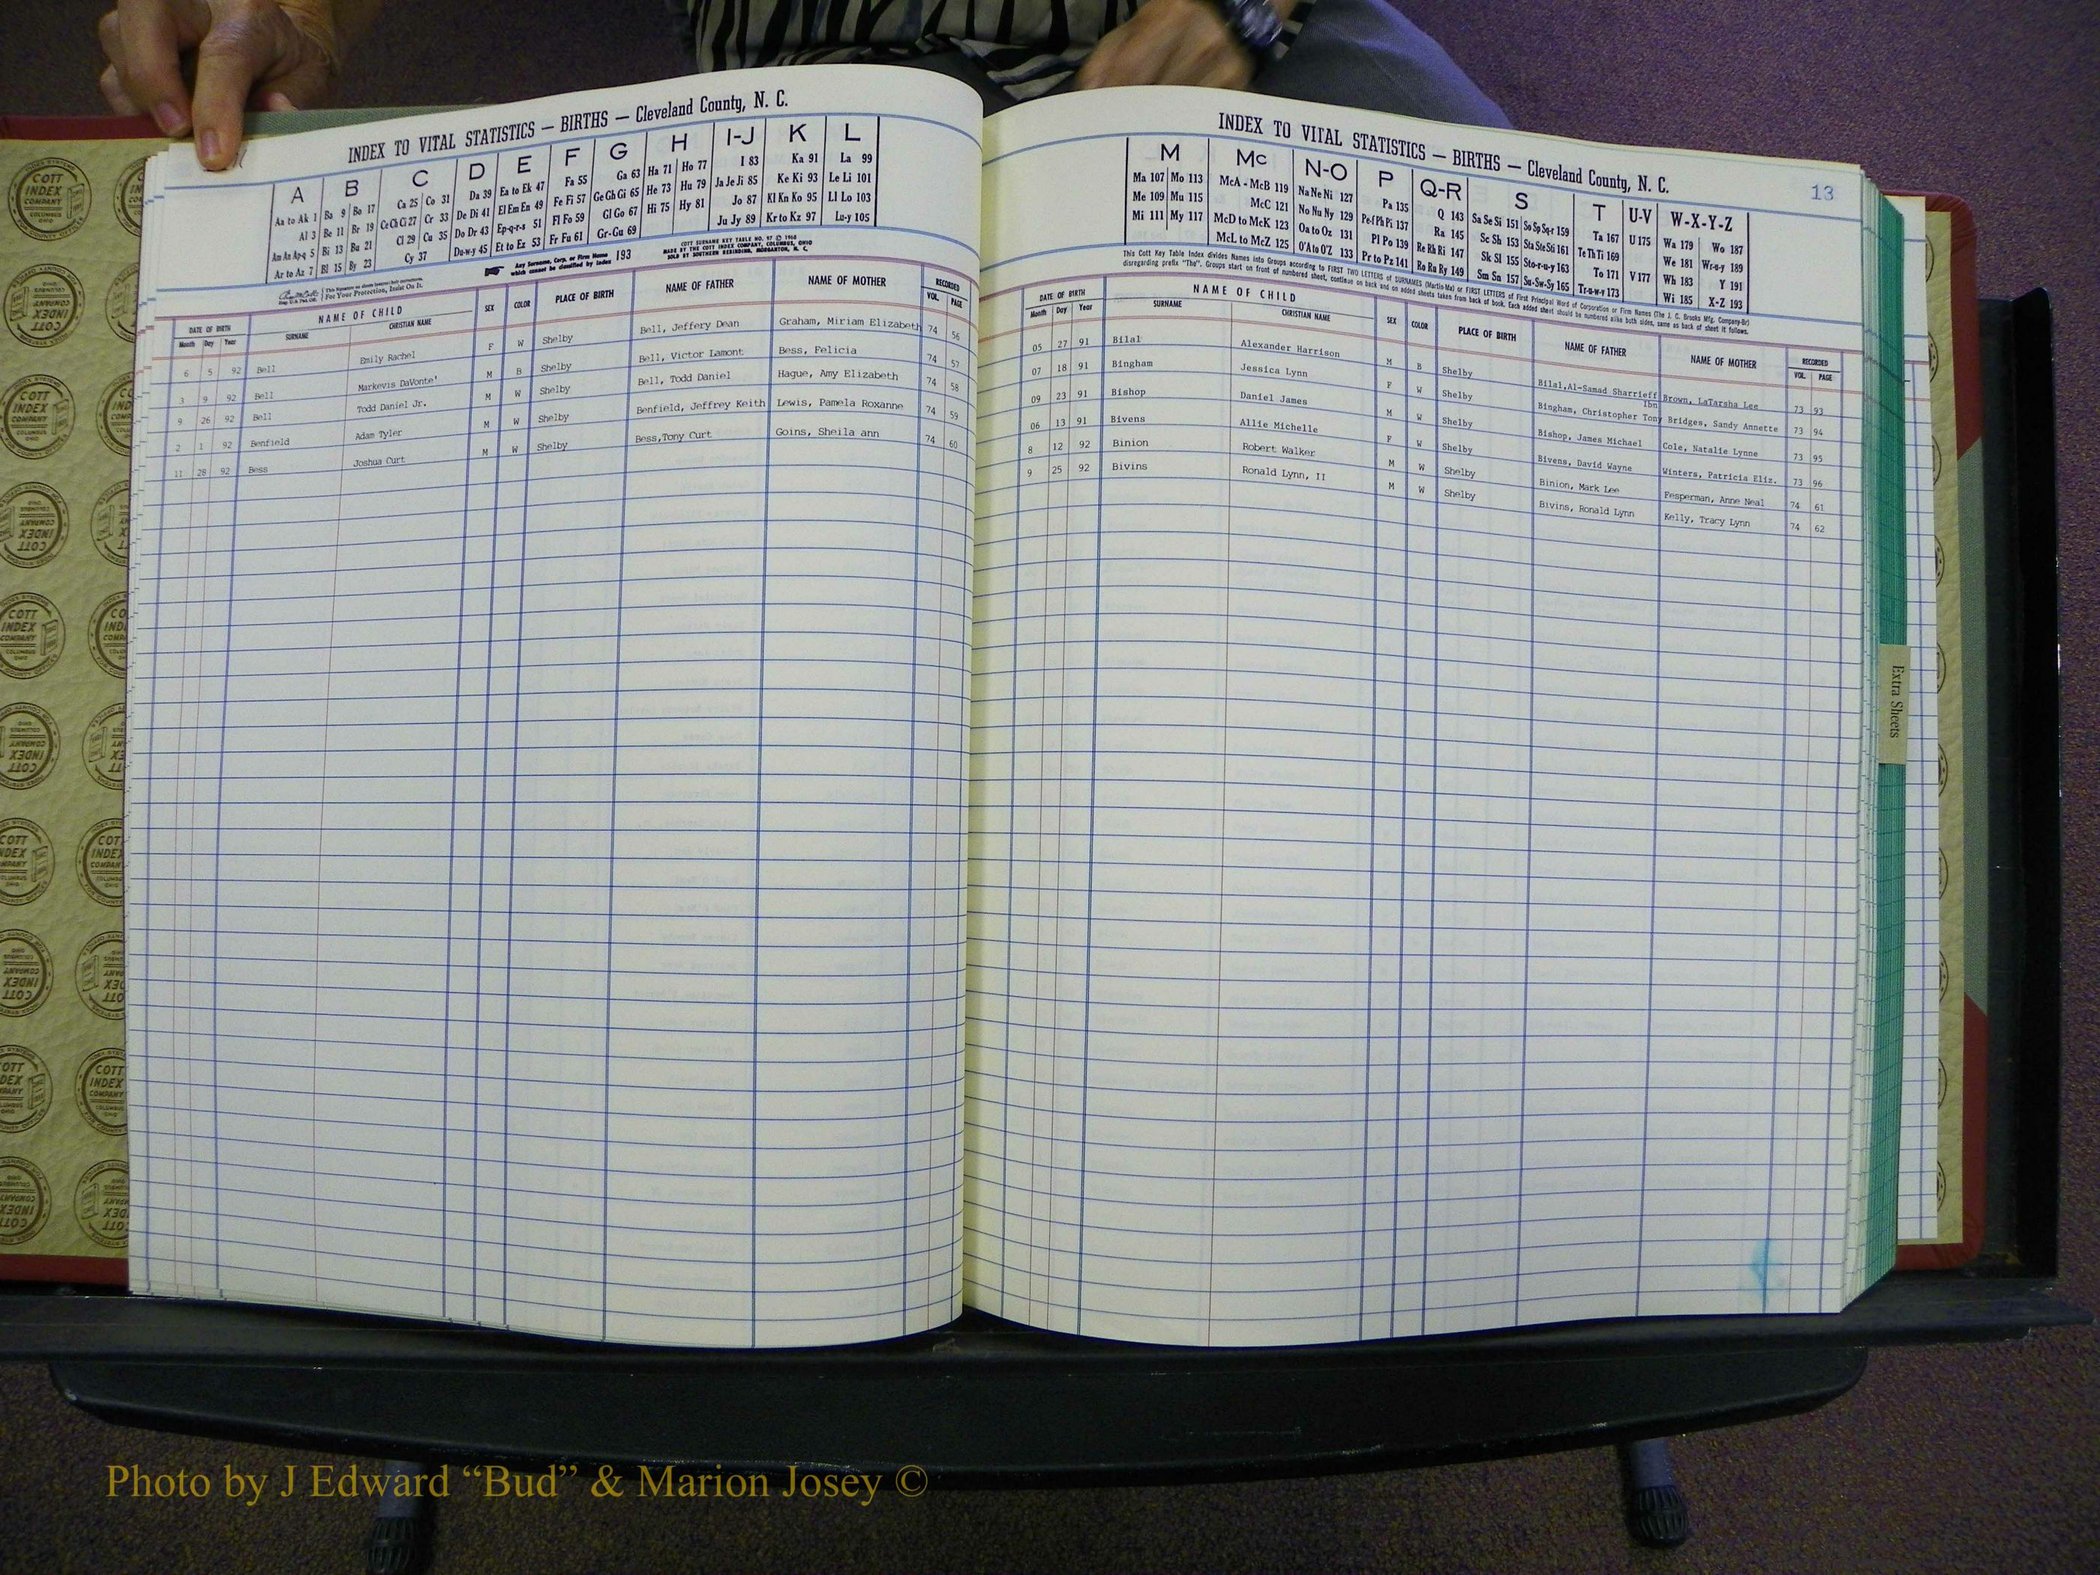 INDEX TO VITAL STATISTICS — BIRTHS — Cleveland County, N. C.
A B C D E F G H I-J K L
Aa to Ak 1 Ba 9 Bo 17 Ca 25 Co 31 Da 39 Ea to Ek 47 Fa 55 Ga 63 Ha 71 Ho 77 I 83 Ka 91 La 99
Al 3 Be 11 Br 19 Ce Ch Ci 27 Cr 33 De Di 41 El Em En 49 Fe Fi 57 Ge Gh Gi 65 He 73 Hu 79 Ja Je Ji 85 Ke Ki 93 Le Li 101
Am An Ap-q 5 Bi 13 Bu 21 Cl 29 Cu 35 Do Dr 43 Ep-q-r-s 51 Fl Fo 59 Gl Go 67 Hi 75 Hy 81 Jo 87 Kl Kn Ko 95 Ll Lo 103
Ar to Az 7 Bl 15 By 23 Cy 37 Du-w-y 45 Et to Ez 53 Fr Fu 61 Gr-Gu 69 Ju Jy 89 Kr to Kz 97 Lu-y 105
Any Surname, Corp. or Firm Name which cannot be classified by index 193
COTT SURNAME KEY TABLE NO. 97 © 1968
MADE BY THE COTT INDEX COMPANY, COLUMBUS, OHIO
SOLD BY SOUTHERN REBINDING, MORGANTON, N. C.
For Your Protection, Insist On It.
DATE OF BIRTH NAME OF CHILD SEX COLOR PLACE OF BIRTH NAME OF FATHER NAME OF MOTHER RECORDED
Month Day Year SURNAME CHRISTIAN NAME VOL. PAGE
6 5 92 Bell Emily Rachel F W Shelby Bell, Jeffery Dean Graham, Miriam Elizabeth 74 56
3 9 92 Bell Markevis DaVonte' M B Shelby Bell, Victor Lamont Bess, Felicia 74 57
9 26 92 Bell Todd Daniel Jr. M W Shelby Bell, Todd Daniel Hague, Amy Elizabeth 74 58
2 1 92 Benfield Adam Tyler M W Shelby Benfield, Jeffrey Keith Lewis, Pamela Roxanne 74 59
11 28 92 Bess Joshua Curt M W Shelby Bess,Tony Curt Goins, Sheila ann 74 60
INDEX TO VITAL STATISTICS — BIRTHS — Cleveland County, N. C.
13
M Mc N-O P Q-R S T U-V W-X-Y-Z
Ma 107 Mo 113 McA - McB 119 Na Ne Ni 127 Pa 135 Q 143 Sa Se Si 151 So Sp Sq-r 159 Ta 167 U 175 Wa 179 Wo 187
Me 109 Mu 115 McC 121 No Nu Ny 129 Pe-f Ph Pi 137 Ra 145 Sc Sh 153 Sta Ste Sti 161 Te Th Ti 169 We 181 Wr-u-y 189
Mi 111 My 117 McD to McK 123 Oa to Oz 131 Pl Po 139 Re Rh Ri 147 Sk Sl 155 Sto-r-u-y 163 To 171 V 177 Wh 183 Y 191
McL to McZ 125 O'A to O'Z 133 Pr to Pz 141 Ro Ru Ry 149 Sm Sn 157 Su-Sw-Sy 165 Tr-u-w-y 173 Wi 185 X-Z 193
This Cott Key Table Index divides Names into Groups according to FIRST TWO LETTERS of SURNAMES (Martin-Ma) or FIRST LETTERS of First Principal Word of Corporation or Firm Names (The J. C. Brooks Mfg. Company-Br)
disregarding prefix "The". Groups start on front of numbered sheet, continue on back and on added sheets taken from back of book. Each added sheet should be numbered alike both sides, same as back of sheet it follows.
DATE OF BIRTH NAME OF CHILD SEX COLOR PLACE OF BIRTH NAME OF FATHER NAME OF MOTHER RECORDED
Month Day Year SURNAME CHRISTIAN NAME VOL. PAGE
05 27 91 Bilal Alexander Harrison M B Shelby Bilal,Al-Samad Sharrieff Ibn Brown, LaTarsha Lee 73 93
07 18 91 Bingham Jessica Lynn F W Shelby Bingham, Christopher Tony Bridges, Sandy Annette 73 94
09 23 91 Bishop Daniel James M W Shelby Bishop, James Michael Cole, Natalie Lynne 73 95
06 13 91 Bivens Allie Michelle F W Shelby Bivens, David Wayne Winters, Patricia Eliz. 73 96
8 12 92 Binion Robert Walker M W Shelby Binion, Mark Lee Fesperman, Anne Neal 74 61
9 25 92 Bivins Ronald Lynn, II M W Shelby Bivins, Ronald Lynn Kelly, Tracy Lynn 74 62
Extra Sheets
COTT INDEX COMPANY
COLUMBUS OHIO
Photo by J Edward “Bud” & Marion Josey ©